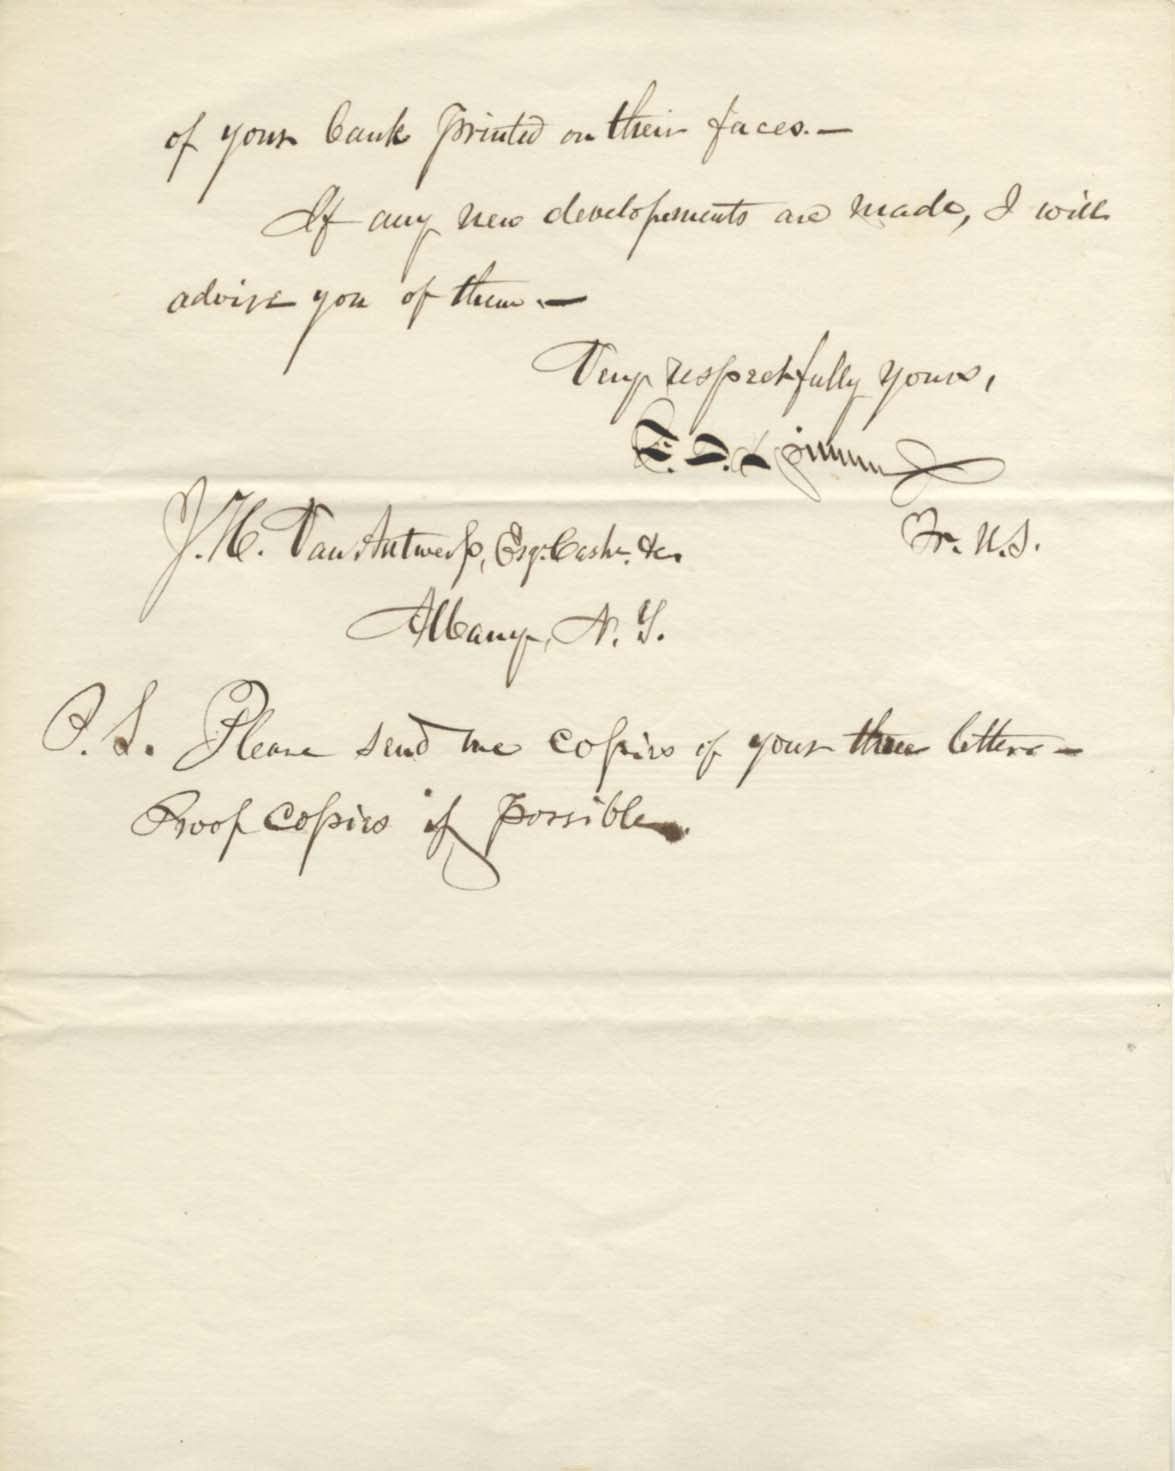 of your bank printed on their faces.—
If any new developements are made, I will
advise you of them.—
Very respectfully yours,
F. E. Spinner
J. H. Van Antwerp, Esqr. Cashr. &c.
Tr. U.S.
Albany, N. Y.
P. S. Please send me copies of your three letters—
Proof copies if possible.